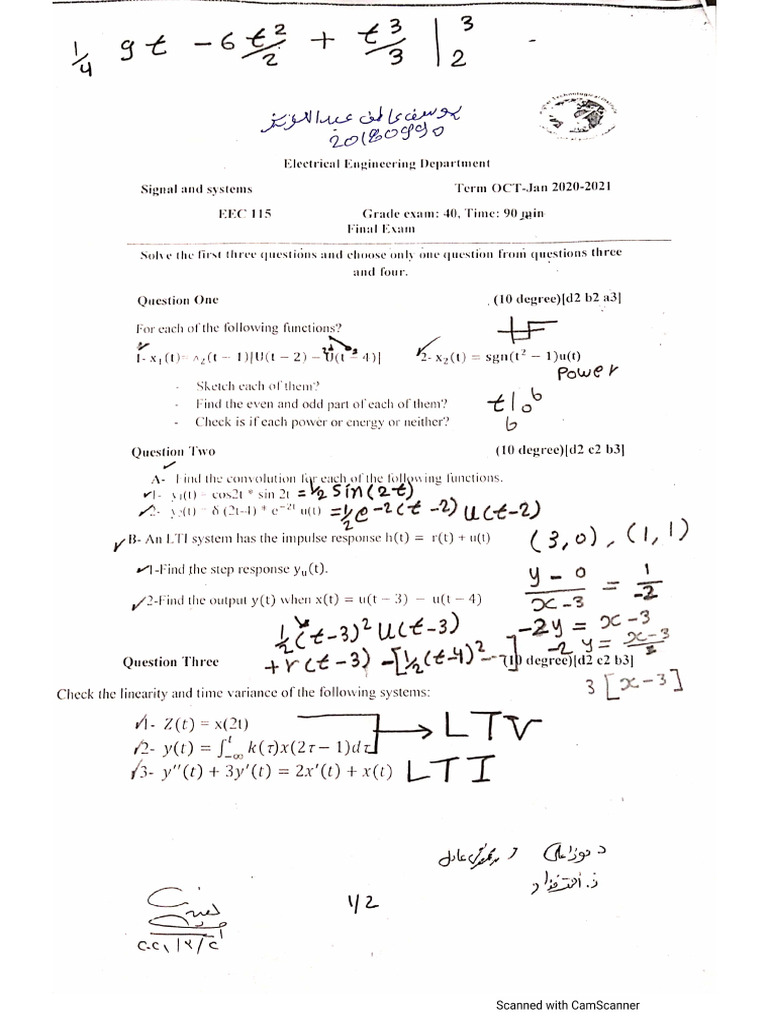 1/4 9t - 6 t²/2 + t³/3 |₂³
يوسف عاطف عبد العزيز
20180990
Electrical Engineering Department
Signal and systems Term OCT-Jan 2020-2021
EEC 115 Grade exam: 40, Time: 90 min
Final Exam
Solve the first three questions and choose only one question from questions three
and four.
Question One (10 degree)[d2 b2 a3]
For each of the following functions?
1- x₁(t)= ^₂(t − 1)[U(t − 2) − U(t − 4)] 2- x₂(t) = sgn(t² − 1)u(t)
Power
- Sketch each of them?
- Find the even and odd part of each of them?
- Check is if each power or energy or neither?
t|₀⁶
6
Question Two (10 degree)[d2 c2 b3]
A- Find the convolution for each of the following functions.
1- y₁(t) = cos2t * sin 2t = 1/2 sin(2t)
2- y₂(t) = δ (2t-4) * e⁻²ᵗ u(t) = 1/2 e^-2(t-2) u(t-2)
B- An LTI system has the impulse response h(t) = r(t) + u(t)
(3,0), (1,1)
1-Find the step response yᵤ(t).
y-0/x-3 = 1/-2
2-Find the output y(t) when x(t) = u(t − 3) − u(t − 4)
1/2(t-3)² u(t-3) -2y = x-3
+r(t-3) -[1/2(t-4)² --]
Question Three (10 degree)[d2 c2 b3]
3[x-3]
Check the linearity and time variance of the following systems:
1- Z(t) = x(2t)
LTV
2- y(t) = ∫₋∞ᵗ k(τ)x(2τ − 1)dτ
3- y′′(t) + 3y′(t) = 2x′(t) + x(t) LTI
1/2
Scanned with CamScanner